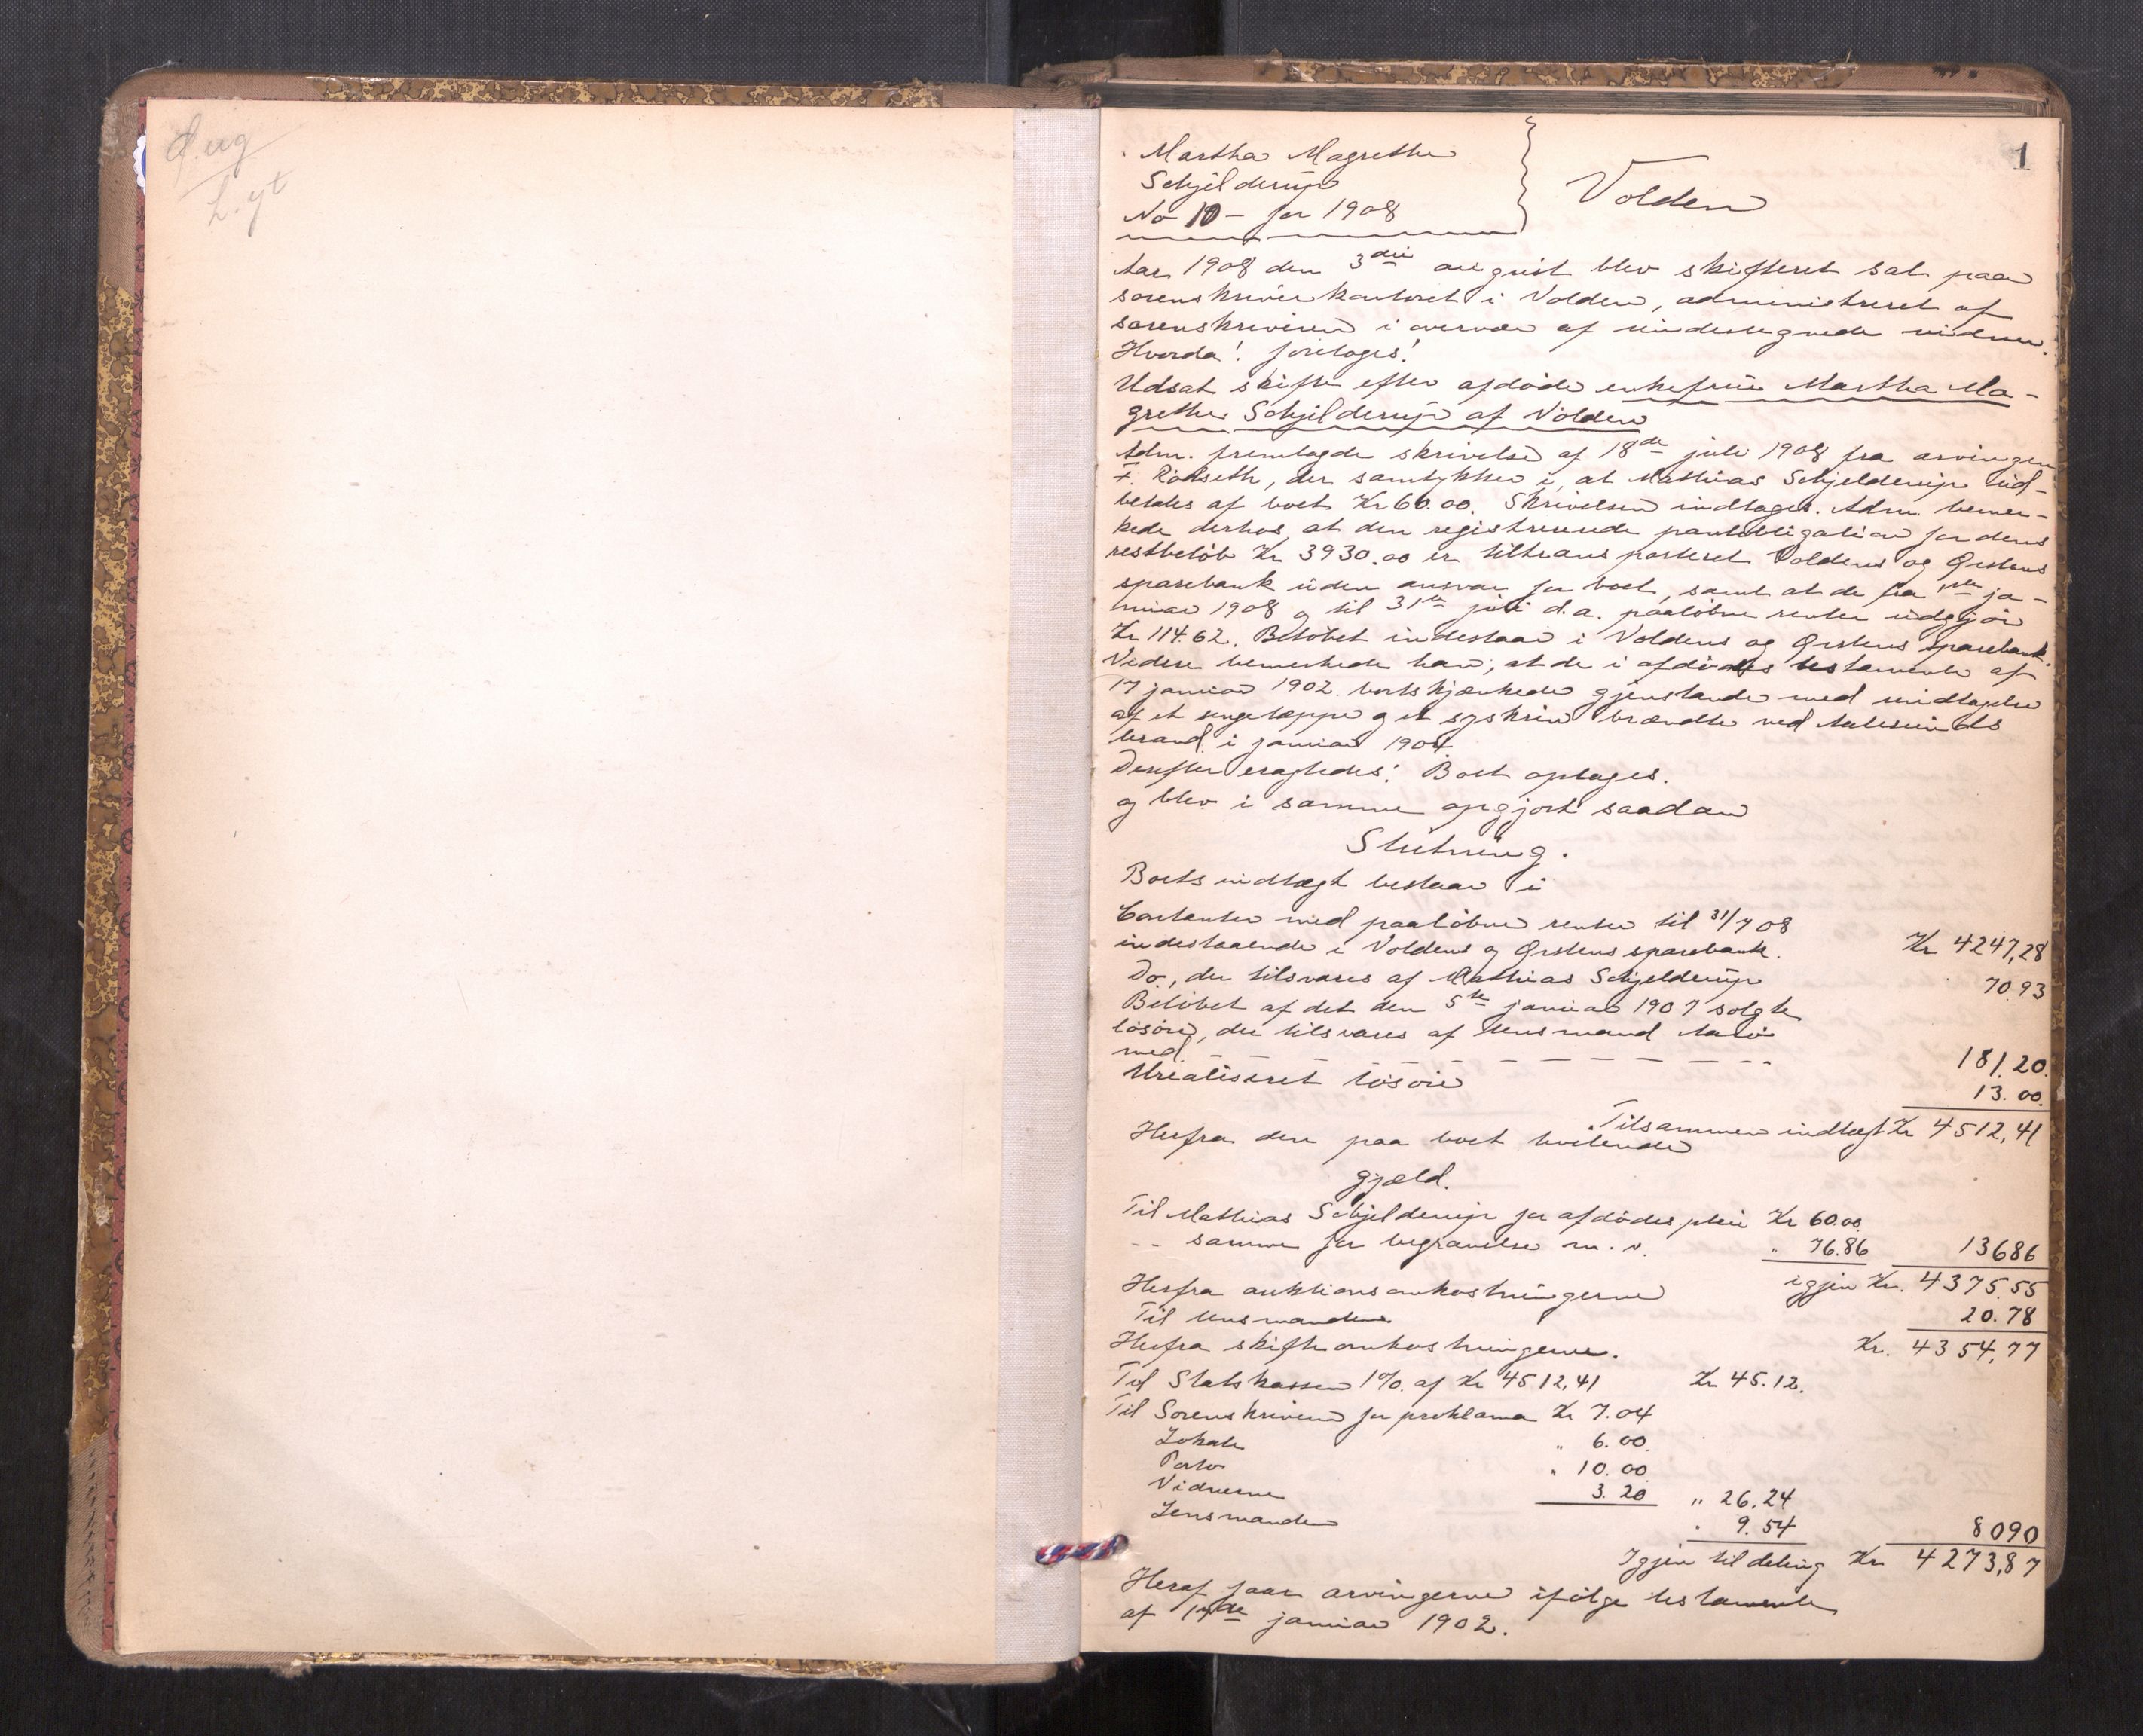 1
Martha Magrethe
Schjelderup
No 10 - for 1908
Volden
Aar 1908 den 3die august blev skifteret sat paa
sorenskriverkontoret i Volden, administreret af
sorenskriveren i overvær af undertegnede vidner.
Hvorda! foretoges!
Udsat skifte efter afdøde enkefrue Martha Ma-
grethe Schjelderup af Volden
Adm. fremlagde skrivelse af 18de juli 1908 fra arvingen
F. Rödseth, der samtykker i, at Mathias Schjelderup ud-
betales af boet Kr 60.00. Skrivelsen indtages. Adm. bemer-
kede derhos, at den registrerede pantobligation for dens
restbeløb Kr 3930.00 er tiltransporteret Voldens og Ørstens
sparebank uden ansvar for boet, samt at de fra 1ste ja-
nuar 1908 og til 31te juli d.a. paaløbne renter udgjør
Kr 114.62. Beløbet indestaar i Voldens og Ørstens sparebank.
Videre bemerkede han, at de i afdødes testamente af
17 januar 1902 bortskjænkede gjenstande med undtagelse
af et sengetæppe og et syskrin brændte ved Aalesunds
brand i januar 1904
Derefter eragtedes: Boet optages.
og blev i samme opgjort saadan
Slutning.
Boets indtægt bestaar i
Contanter med paaløbne renter til 31/7 08
indestaaende i Voldens og Ørstens sparebank. Kr 4247,28
Do., der tilsvares af Mathias Schjelderup 70.93
Beløbet af det den 5te januar 1907 solgte
løsøre, der tilsvares af lensmand Aarø
med - - - - - - - - - 181.20.
Urealiseret løsøre 13.00.
Tilsammen indtægt Kr 4512,41
Herfra den paa boet hvilende
gjæld.
Til Mathias Schjelderup for afdødes pleie Kr 60.00.
-- samme for begravelse m.v. " 76.86 13686
igjen Kr. 4375.55
Herfra auktionsomkostningerne
Til lensmanden 20.78
Kr. 4354,77
Herfra skifteomkostningerne.
Til Statskassen 1% af Kr 4512,41 Kr 45.12.
Til Sorenskriveren for proklama Kr 7.04
Lokale " 6.00.
Porto " 10.00
Vidnerne 3.20 " 26.24
Lensmanden " 9.54 8090
Igjen til deling Kr 4273,87
Heraf faar arvingerne ifølge testamente
af 17de januar 1902.